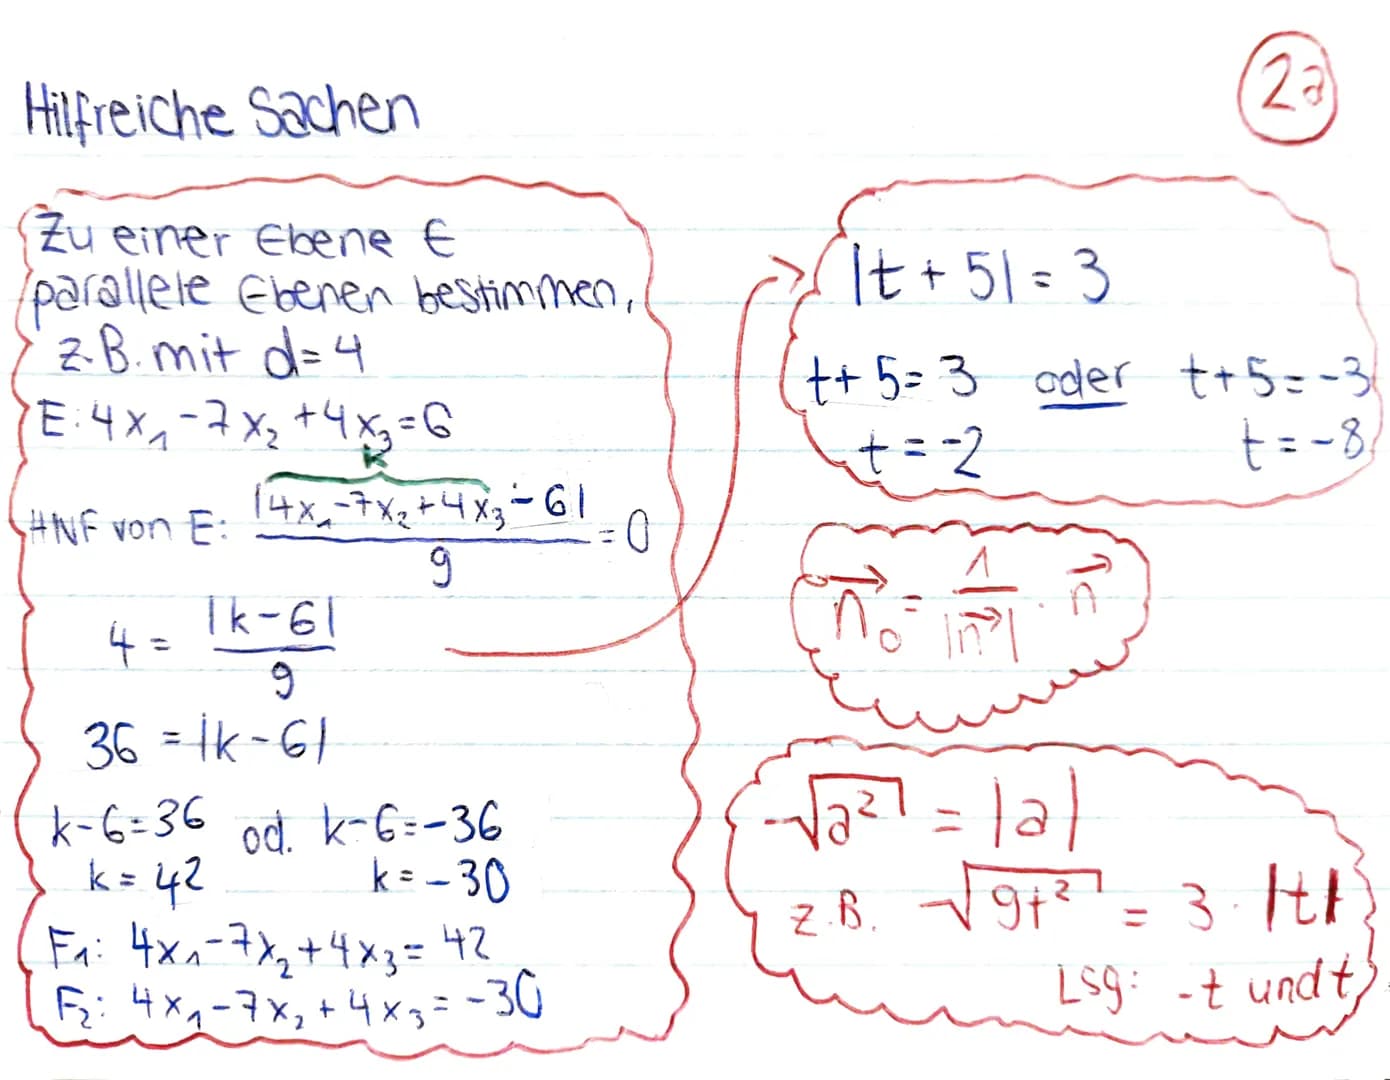 Hilfreiche Sachen
2a
Zu einer Ebene E
parallele Ebenen bestimmen,
z.B. mit d=4
E: 4x₁ -7x₂ +4x₃=6
k
HNF von E: |4x₁-7x₂+4x₃-6| / 9 = 0
4 = |k-6| / 9
36 = |k-6|
k-6=36 od. k-6=-36
k = 42 k = -30
F₁: 4x₁-7x₂+4x₃= 42
F₂: 4x₁-7x₂+4x₃= -30
|t + 5| = 3
t+5=3 oder t+5=-3
t = -2 t = -8
n⃗₀ = 1 / |n⃗| · n⃗
√a² = |a|
z.B. √9t² = 3 · |t|
Lsg: -t und t